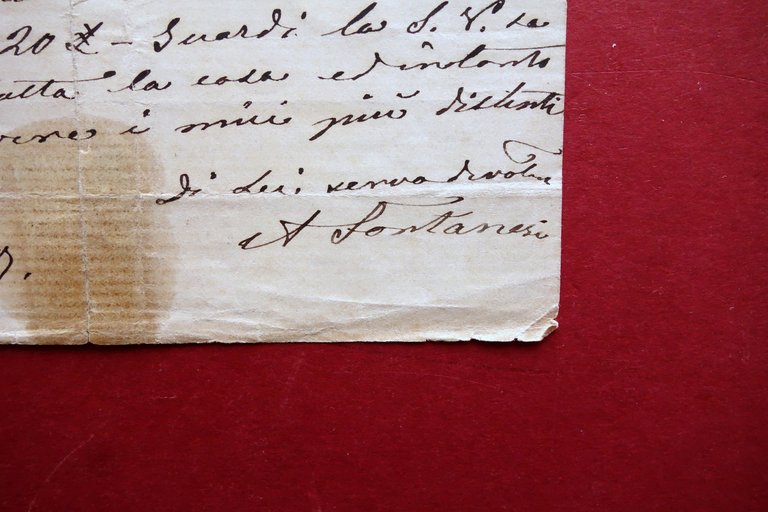 20 - Guardi la S. V. se
atta la cosa ed intanto
i miei più distinti
Di Lei servo devotm
A Fontanesi
7.